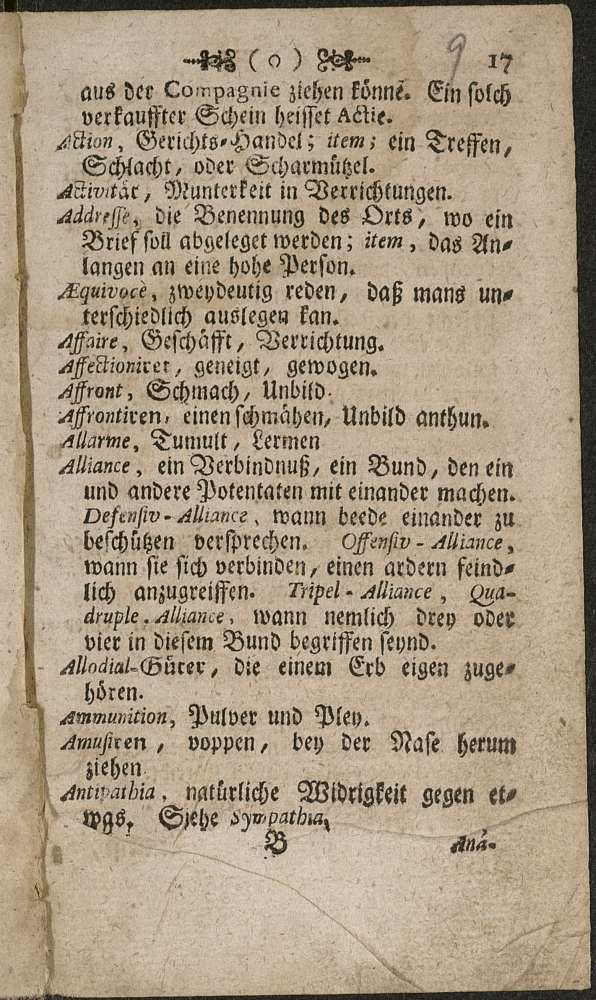 ( o ) 9 17
aus der Compagnie ziehen könne. Ein solch
verkauffter Schein heisset Actie.
Action, Gerichts-Handel; item; ein Treffen,
Schlacht, oder Scharmützel.
Activität, Munterkeit in Verrichtungen.
Addresse, die Benennung des Orts, wo ein
Brief soll abgeleget werden; item, das An-
langen an eine hohe Person.
Æquivocè, zweydeutig reden, daß mans un-
terschiedlich auslegen kan.
Affaire, Geschäfft, Verrichtung.
Affectioniret, geneigt, gewogen.
Affront, Schmach, Unbild.
Affrontiren, einen schmähen, Unbild anthun.
Allarme, Tumult, Lermen
Alliance, ein Verbindnuß, ein Bund, den ein
und andere Potentaten mit einander machen.
Defensiv-Alliance, wann beede einander zu
beschützen versprechen. Offensiv-Alliance,
wann sie sich verbinden, einen ardern feind-
lich anzugreiffen. Tripel-Alliance, Qua-
druple-Alliance, wann nemlich drey oder
vier in diesem Bund begriffen seynd.
Allodial-Güter, die einem Erb eigen zuge-
hören.
Ammunition, Pulver und Pley.
Amusiren, voppen, bey der Nase herum
ziehen
Antipathia, natürliche Widrigkeit gegen et-
was, Siehe Sympathia,
B Ana-